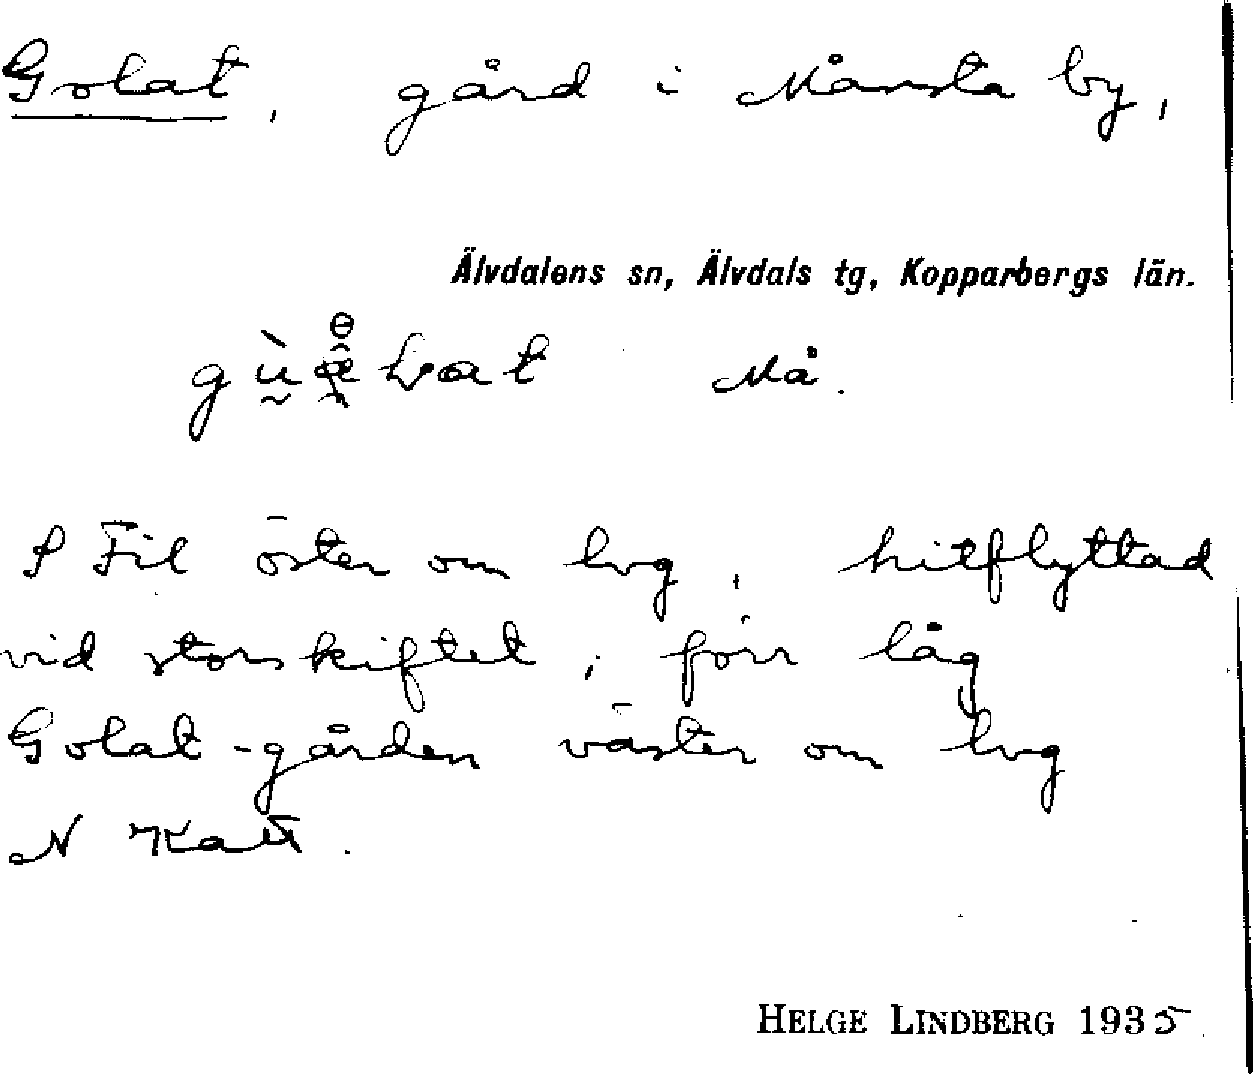 Golat, gård i Månsta by,
Älvdalens sn, Älvdals tg, Kopparbergs län.
Må.
S Fil öster om lvg, hitflyttad
vid storskiftet; förr låg
Golat-gården väster om lvg
N Katt.
HELGE LINDBERG 1935